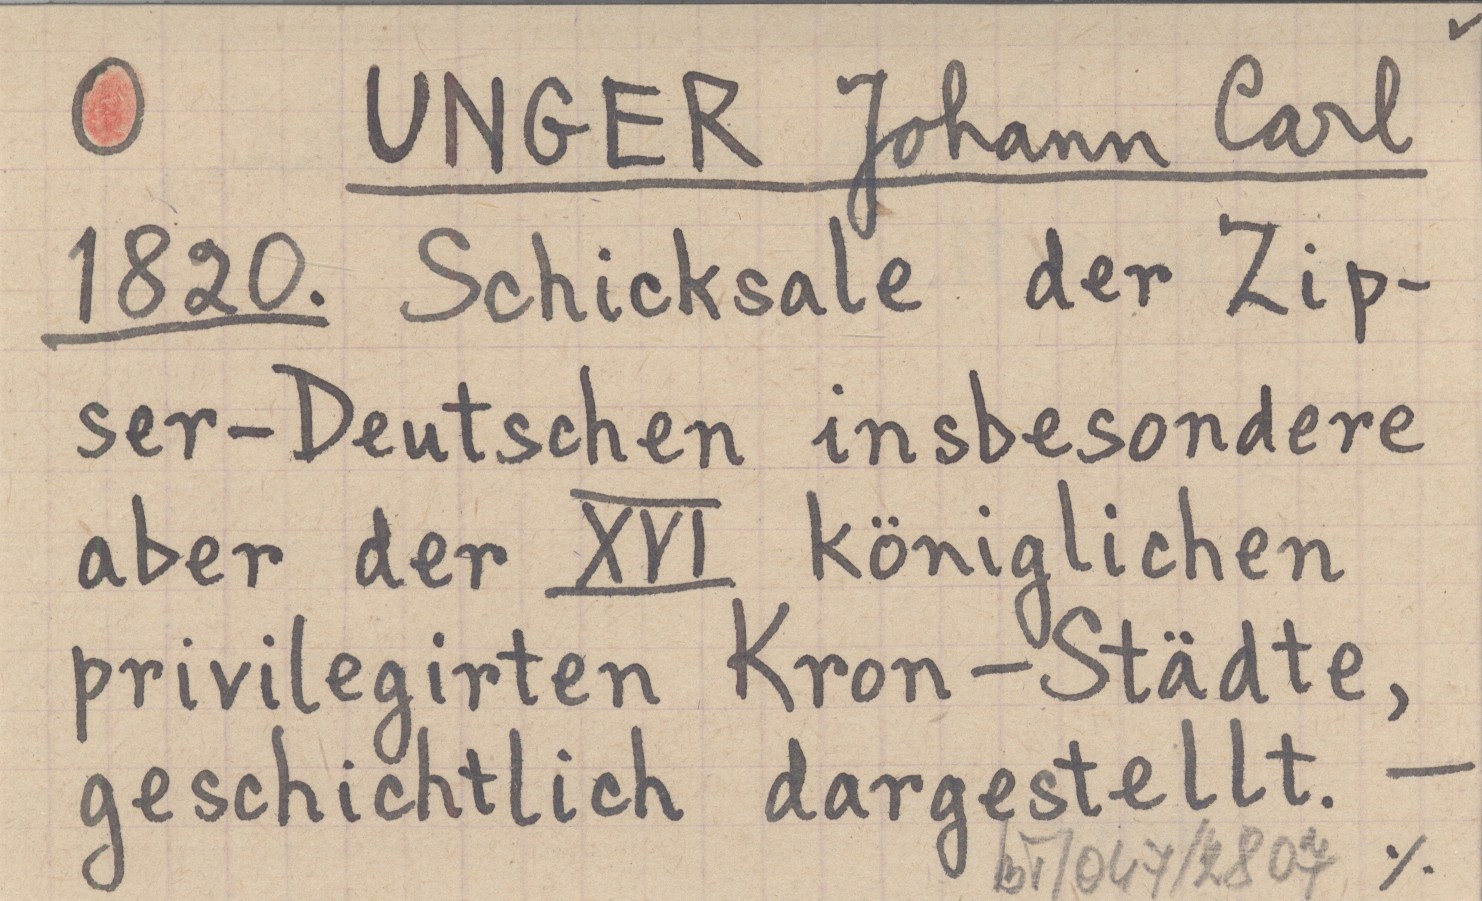 UNGER Johann Carl
1820. Schicksale der Zip-
ser-Deutschen insbesondere
aber der XVI königlichen
privilegirten Kron-Städte,
geschichtlich dargestellt. —
·/.